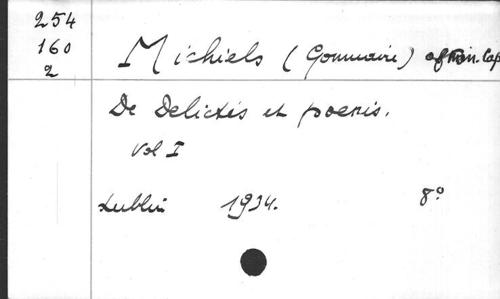 254
160
2
Michiels (Gommaire) of Min. Cap
De Delictis et poenis.
Vol I
Lublin 1934. 8º